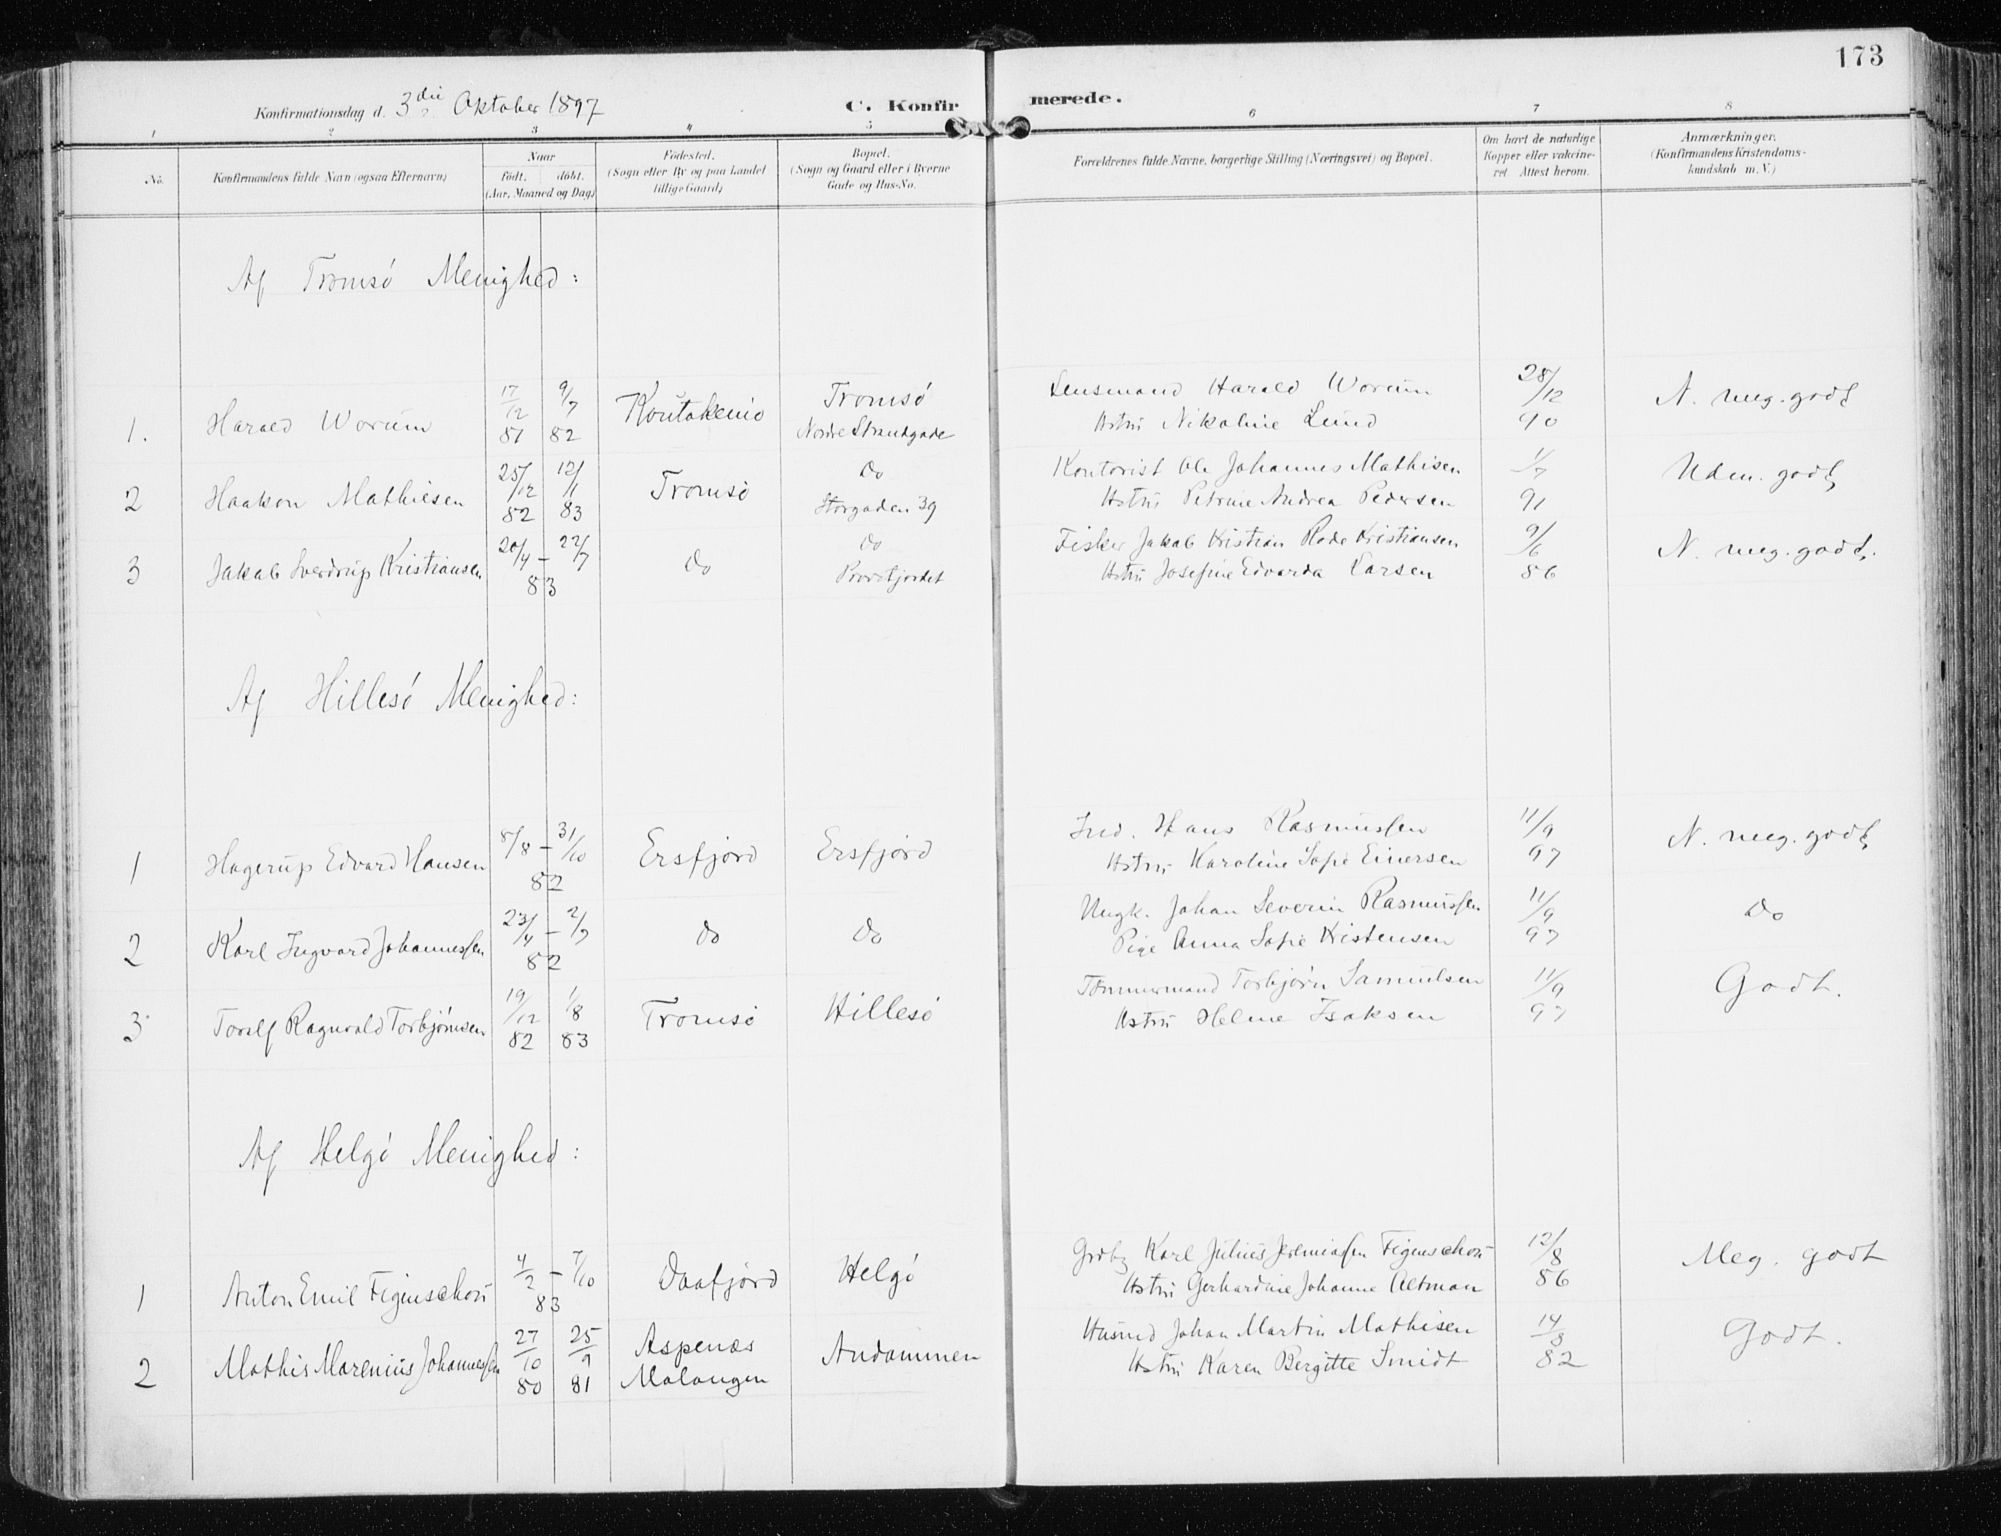 173
Konfirmationsdag d. 3die Oktober 1897
C. Konfirmerede.
1 2 3 4 5 6 7 8
No.
Konfirmandens fulde Navn (ogsaa Efternavn)
Naar
født. døbt.
(Aar, Maaned og Dag)
Fødested.
(Sogn eller By og paa Landet
tillige Gaard)
Bopæl.
(Sogn og Gaard eller i Byerne
Gade og Hus-No.
Forældrenes fulde Navne, borgerlige Stilling (Næringsvei) og Bopæl.
Om havt de naturlige
Kopper eller vakcine-
ret Attest herom.
Anmærkninger.
(Konfirmandens Kristendoms-
kundskab m. V.)
Af Tromsö Menighed:
1. Harald Worum 17/12 81 9/7 82 Koutokeino Tromsö Nordre Strandgade
Lensmand Harald Worum 28/12 90 N. meg. godt
Hstru Nikoline Lund
2 Haakon Mathiesen 25/12 82 12/1 83 Tromsö Do Storgaden 39
Kontorist Ole Johannes Mathisen 1/7 91 Udm. godt
Hstru Petrine Andrea Pedersen
3 Jakob Sverdrup Kristiansen 20/4 – 22/7 83 Do Do
Fisker Jakob Kristian Rode Kristiansen 9/6 86 N. meg. godt.
Hstru Josefine Edvarda Larsen
Af Hillesö Menighed:
1 Hagerup Edvard Hansen 8/8 – 31/10 82 Ersfjord Ersfjord
Ind. Hans Rasmussen 11/9 97 N. meg. godt
Hstru Karoline Sofie Einersen
2 Karl Ingvard Johannessen 23/4 – 2/7 82 Do Do
Ungk. Johan Severin Rasmussen 11/9 97 Do
Pige Anna Sofie Kristensen
3 Torolf Ragnvald Torbjörnsen 19/12 82 1/8 83 Tromsö Hillesö
Tömmermand Torbjörn Samuelsen 11/9 97 Godt.
Hstru Helene Isaksen
Af Helgö Menighed:
1 Anton Emil Figenschou 4/2 – 7/10 83 Daafjord Helgö
Grdbr Karl Julius Jeremiassen Figenschou 12/8 86 Meg. godt
Hstru Gerhardine Johanne Altman
2 Mathis Marenius Johannessen 27/10 80 25/9 81 Aspenæs Malangen Andammen
Husmd Johan Martin Mathisen 14/8 82 Godt.
Hstru Karen Bergitte Smidt